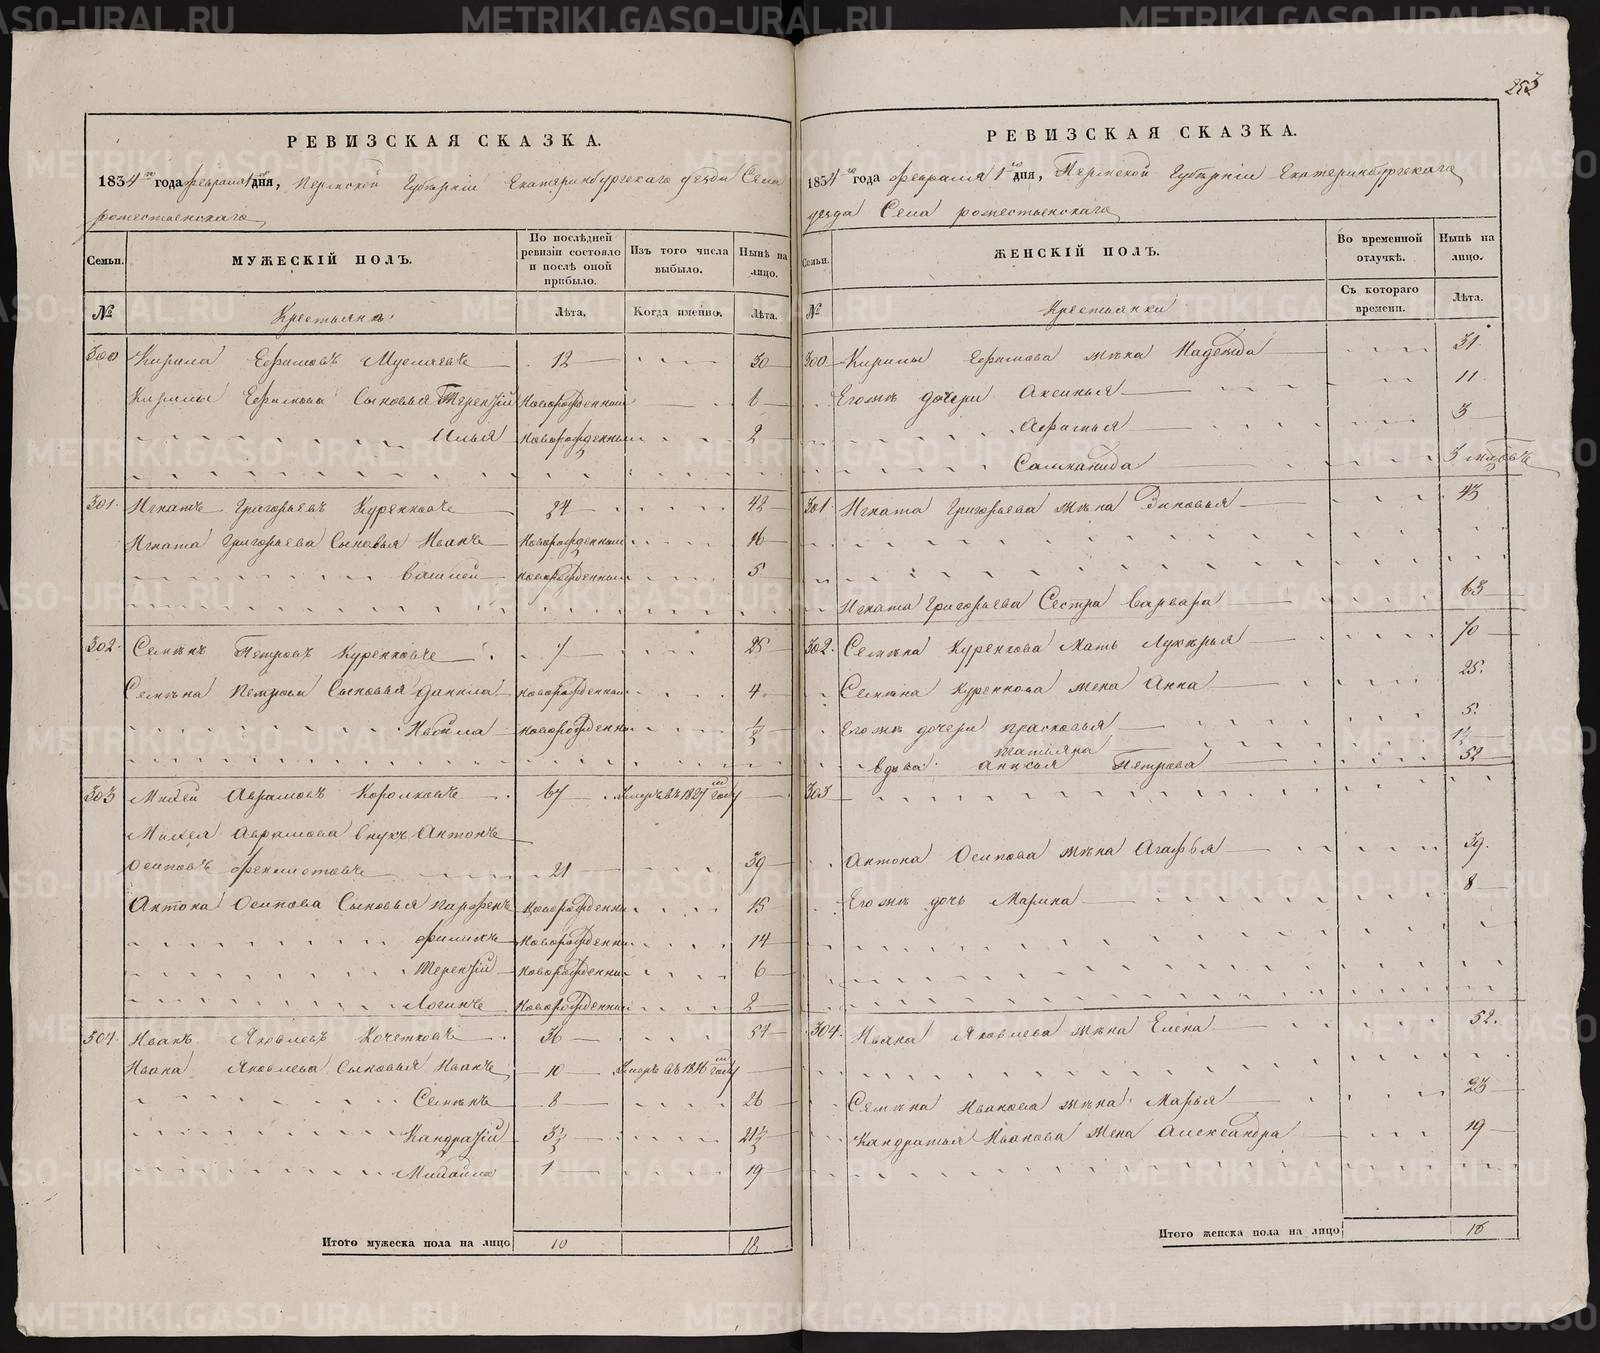 253
РЕВИЗСКАЯ СКАЗКА.
1834 го года февраля 1 дня, Пермской Губерніи Екатеринбургскаго уезда Села
рожественскаго
Семьи.
МУЖЕСКІЙ ПОЛЪ.
По послѣдней ревизіи состояло и послѣ оной прибыло.
Изъ того числа выбыло.
Нынѣ на лицо.
№
Крестьяне
Лѣта.
Когда именно.
Лѣта.
300 Кирила Ефимовъ 12 30
Кирилы Ефимова Сыновья Терентій Новорожденный 6
Илья новорожденный 2
301. Игнатъ Григорьевъ Куренковъ 24 42
Игната Григорьева Сыновья Иванъ Новорожденный 16
василей новорожденный 5
302. Семенъ Петровъ Куренковъ 7 25
Семена Петрова Сыновья Данила новорожденный 4
новорожденны ½
303 Михей Аврамовъ Королковъ 67 Умеръ въ 1827 м году
Михея Аврамова внукъ Антонъ
Осиповъ 21 39
Антона Осипова Сыновья парфенъ новорожденны 15
филипъ новорожденны 14
Терентій новорожденны 6
Логинъ Новорожденный 2
304. Иванъ Яковлевъ Кочетковъ 36 54
Ивана Яковлева Сыновья Иванъ 10 Умеръ въ 1816 м году
Семенъ 8 26
Кандратій 3½ 21½
Михайло 1 19
Итого мужеска пола на лицо 10 18
РЕВИЗСКАЯ СКАЗКА.
1834 го года февраля 1 го дня, Пермской Губерніи Екатеринбургскаго
уезда Села рожественскаго
Семьи.
ЖЕНСКІЙ ПОЛЪ.
Во временной отлучкѣ.
Нынѣ на лицо.
№
Крестьянки
Съ котораго времени.
Лѣта.
300 Кирилы Ефимова жена Надежда 31
Егоже дочери Аксинья 11
Афимья 3
3
301. Игната Григорьева жена Зиновья 43
Игната Григорьева Сестра Варвара 63
302. Семена Куренкова Мать Лукерья 70
Семена Куренкова жена Анна 25.
Егоже дочери прасковья 5.
татьяна 1½
вдова Петрова 52
303
Антона Осипова жена Агафья 39.
Егоже дочь Марина 8
304. Ивана Яковлева жена Елена 52.
Семена Иванова жена Марья 23
Кандратья Иванова жена Александра 19
Итого женска пола на лицо 16
METRIKI.GASO-URAL.RU